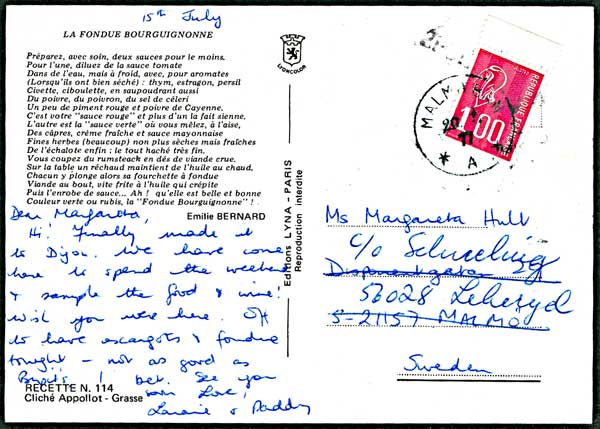 15th July
LA FONDUE BOURGUIGNONNE
Préparez, avec soin, deux sauces pour le moins.
Pour l'une, diluez de la sauce tomate
Dans de l'eau, mais à froid, avec, pour aromates
(Lorsqu'ils ont bien séché) : thym, estragon, persil
Civette, ciboulette, en saupoudrant aussi
Du poivre, du poivron, du sel de céleri
Un peu de piment rouge et poivre de Cayenne.
C'est votre "sauce rouge" et plus d'un la fait sienne.
L'autre est la "sauce verte" où vous mêlez, à l'aise,
Des câpres, crème fraîche et sauce mayonnaise
Fines herbes (beaucoup) non plus sèches mais fraîches
De l'échalote enfin : le tout haché très fin.
Vous coupez du rumsteack en dés de viande crue.
Sur la table un réchaud maintient de l'huile au chaud,
Chacun y plonge alors sa fourchette à fondue
Viande au bout, vite frite à l'huile qui crépite
Puis l'enrobe de sauce... Ah ! qu'elle est belle et bonne
Couleur verte ou rubis, la "Fondue Bourguignonne" !
Emilie BERNARD
Dear Margareta,
Hi! Finally made it
to Dijon. We have come
here to spend the weekend
& sample the food & wine!
Wish you were here. Off
to have escargots & fondue
tonight - not as good as
I bet. See you
soon Love,
& Paddy
RECETTE N. 114
Cliché Appollot - Grasse
LYONCOLOR
Editions LYNA - PARIS
Reproduction interdite
REPUBLIQUE FRANCAISE
1.00
MALMÖ
A
Ms Margareta Hult
c/o
56028
S-21157 MALMÖ
Sweden